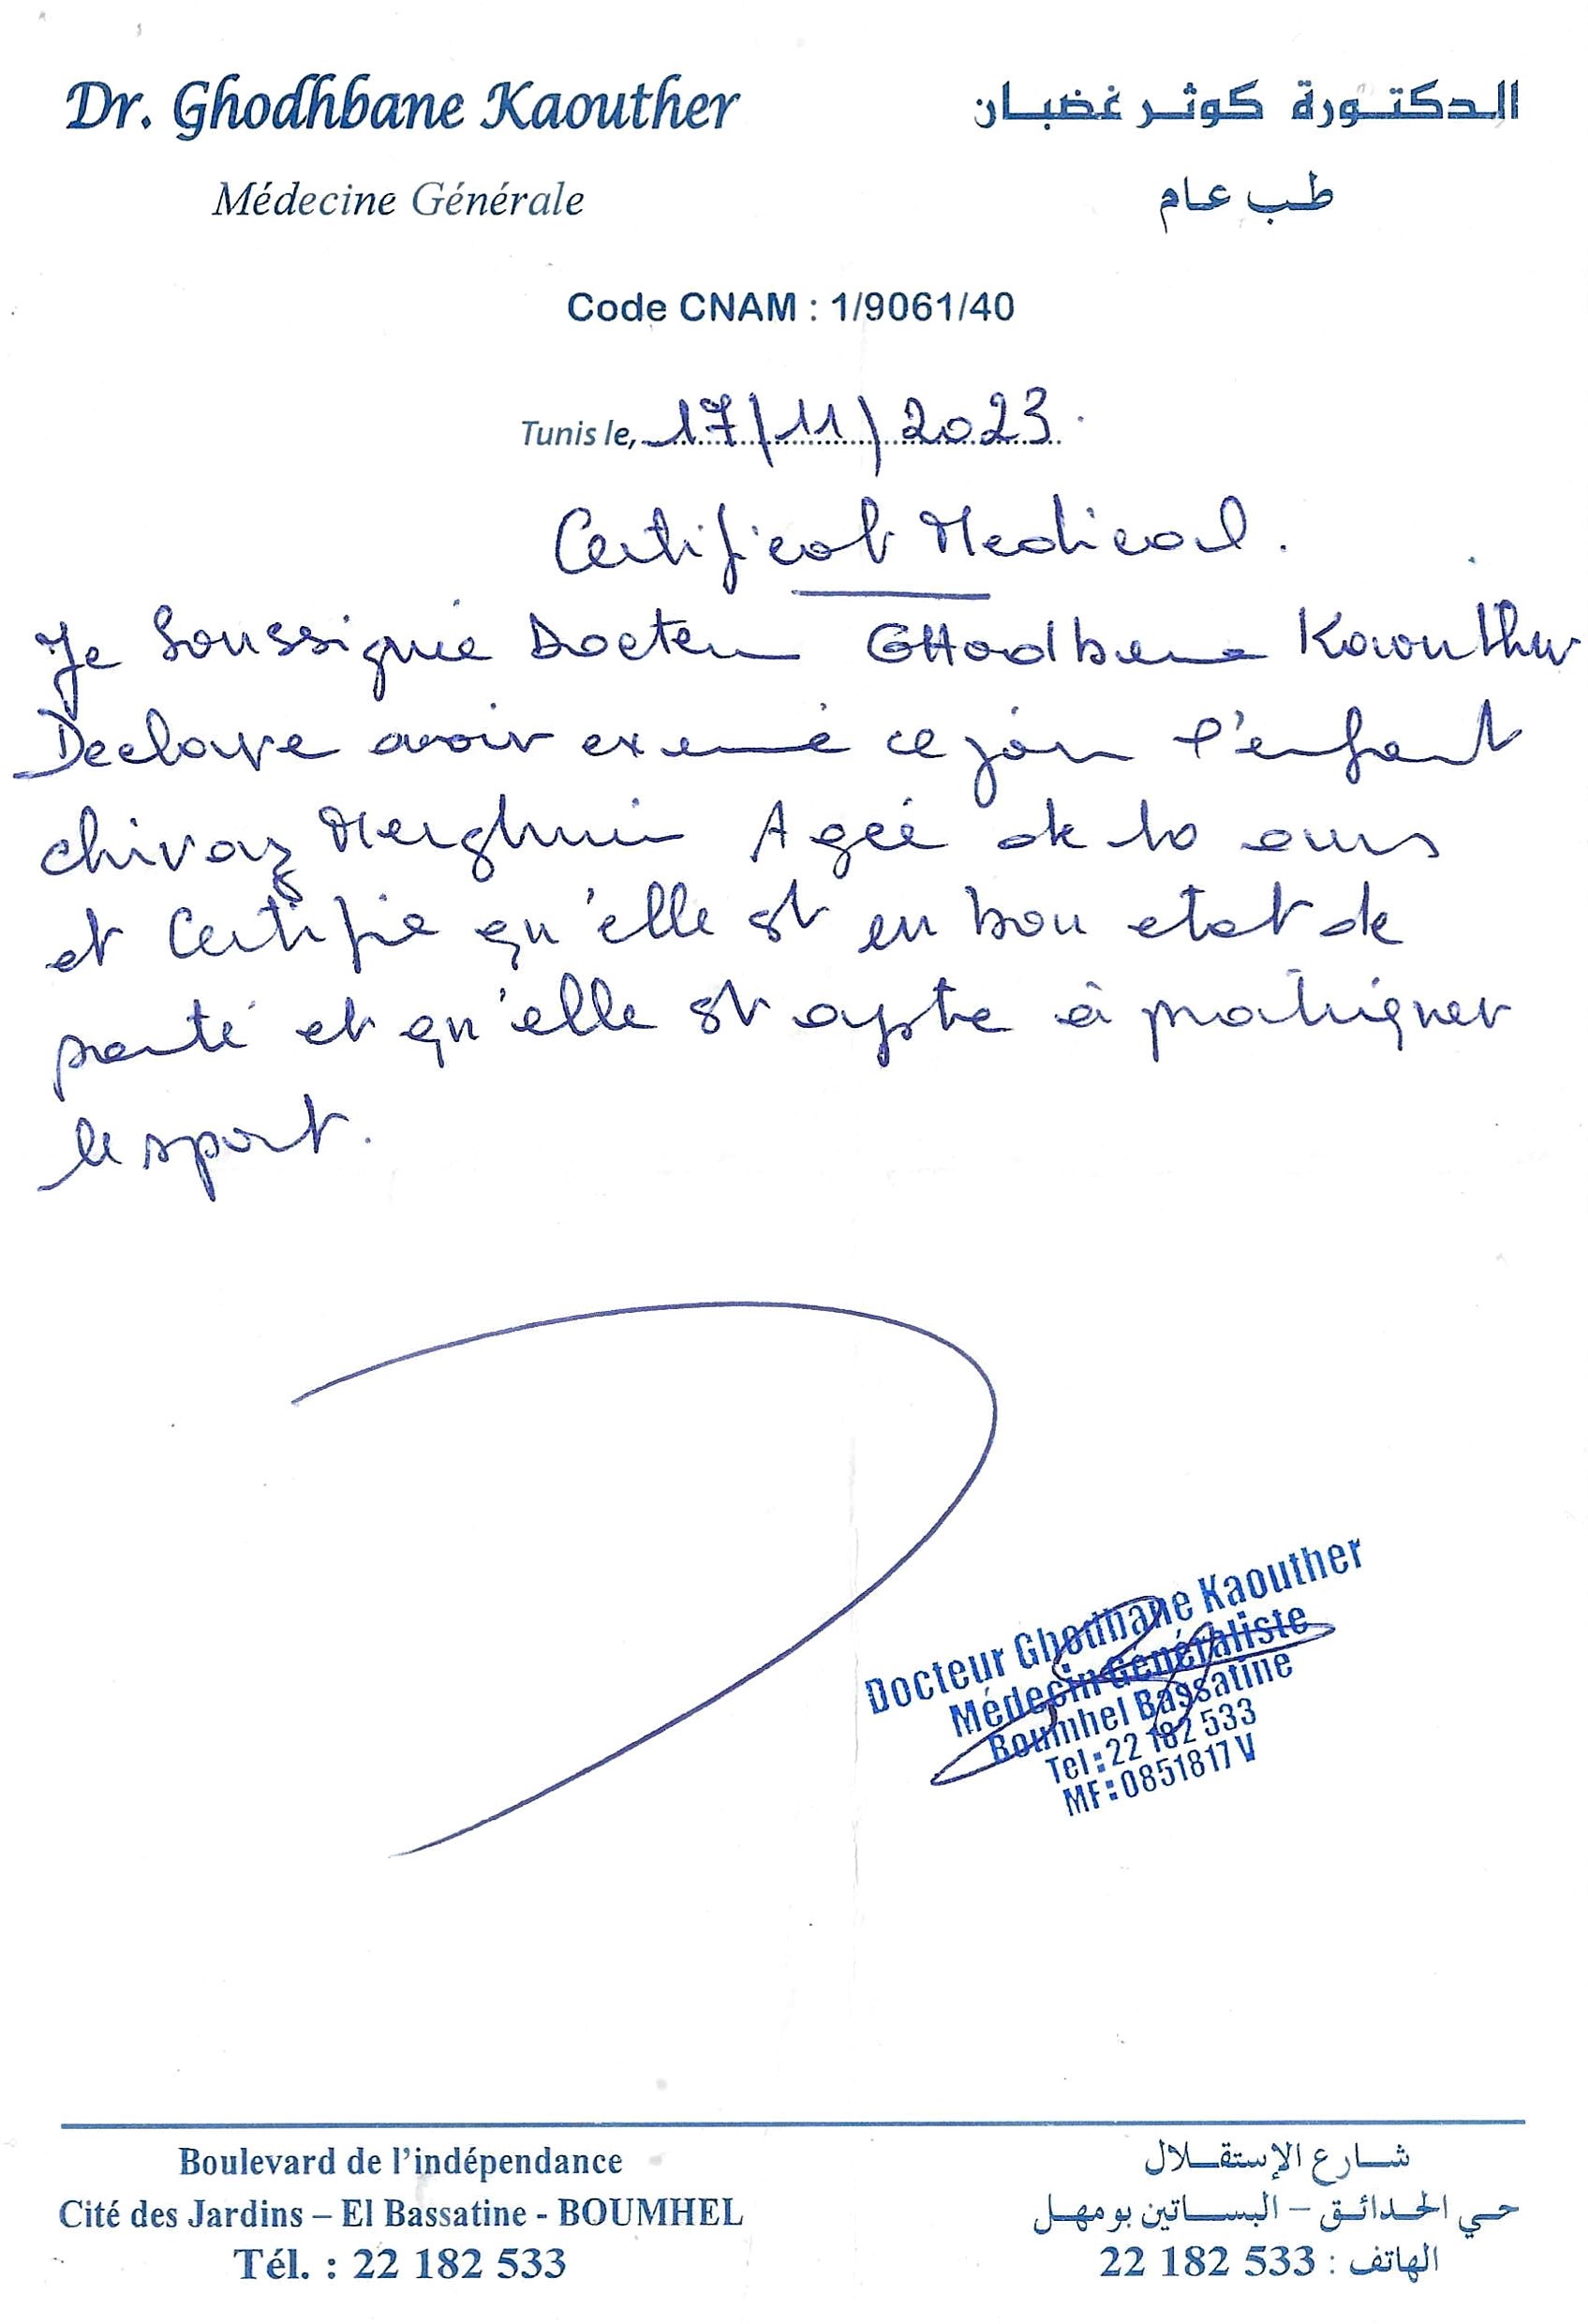 Dr. Ghodhbane Kaouther
الدكتورة كوثر غضبان
Médecine Générale
طب عام
Code CNAM : 1/9061/40
Tunis le, 17/11/2023.
Certificat Medical.
Je Soussignée Docteur GHodbene Kaouther
Declare avoir examiné ce jour l'enfant
chiraz Agée de 10 ans
et Certifie qu'elle est en bon etat de
santé et qu'elle est apte à pratiquer
le sport.
Docteur Ghodbane Kaouther
Médecin Généraliste
Boumhel Bassatine
Tel : 22 182 533
MF : 0851817 V
Boulevard de l'indépendance
شارع الإستقلال
Cité des Jardins – El Bassatine - BOUMHEL
حي الحدائق – البساتين بومهل
Tél. : 22 182 533
الهاتف : 22 182 533